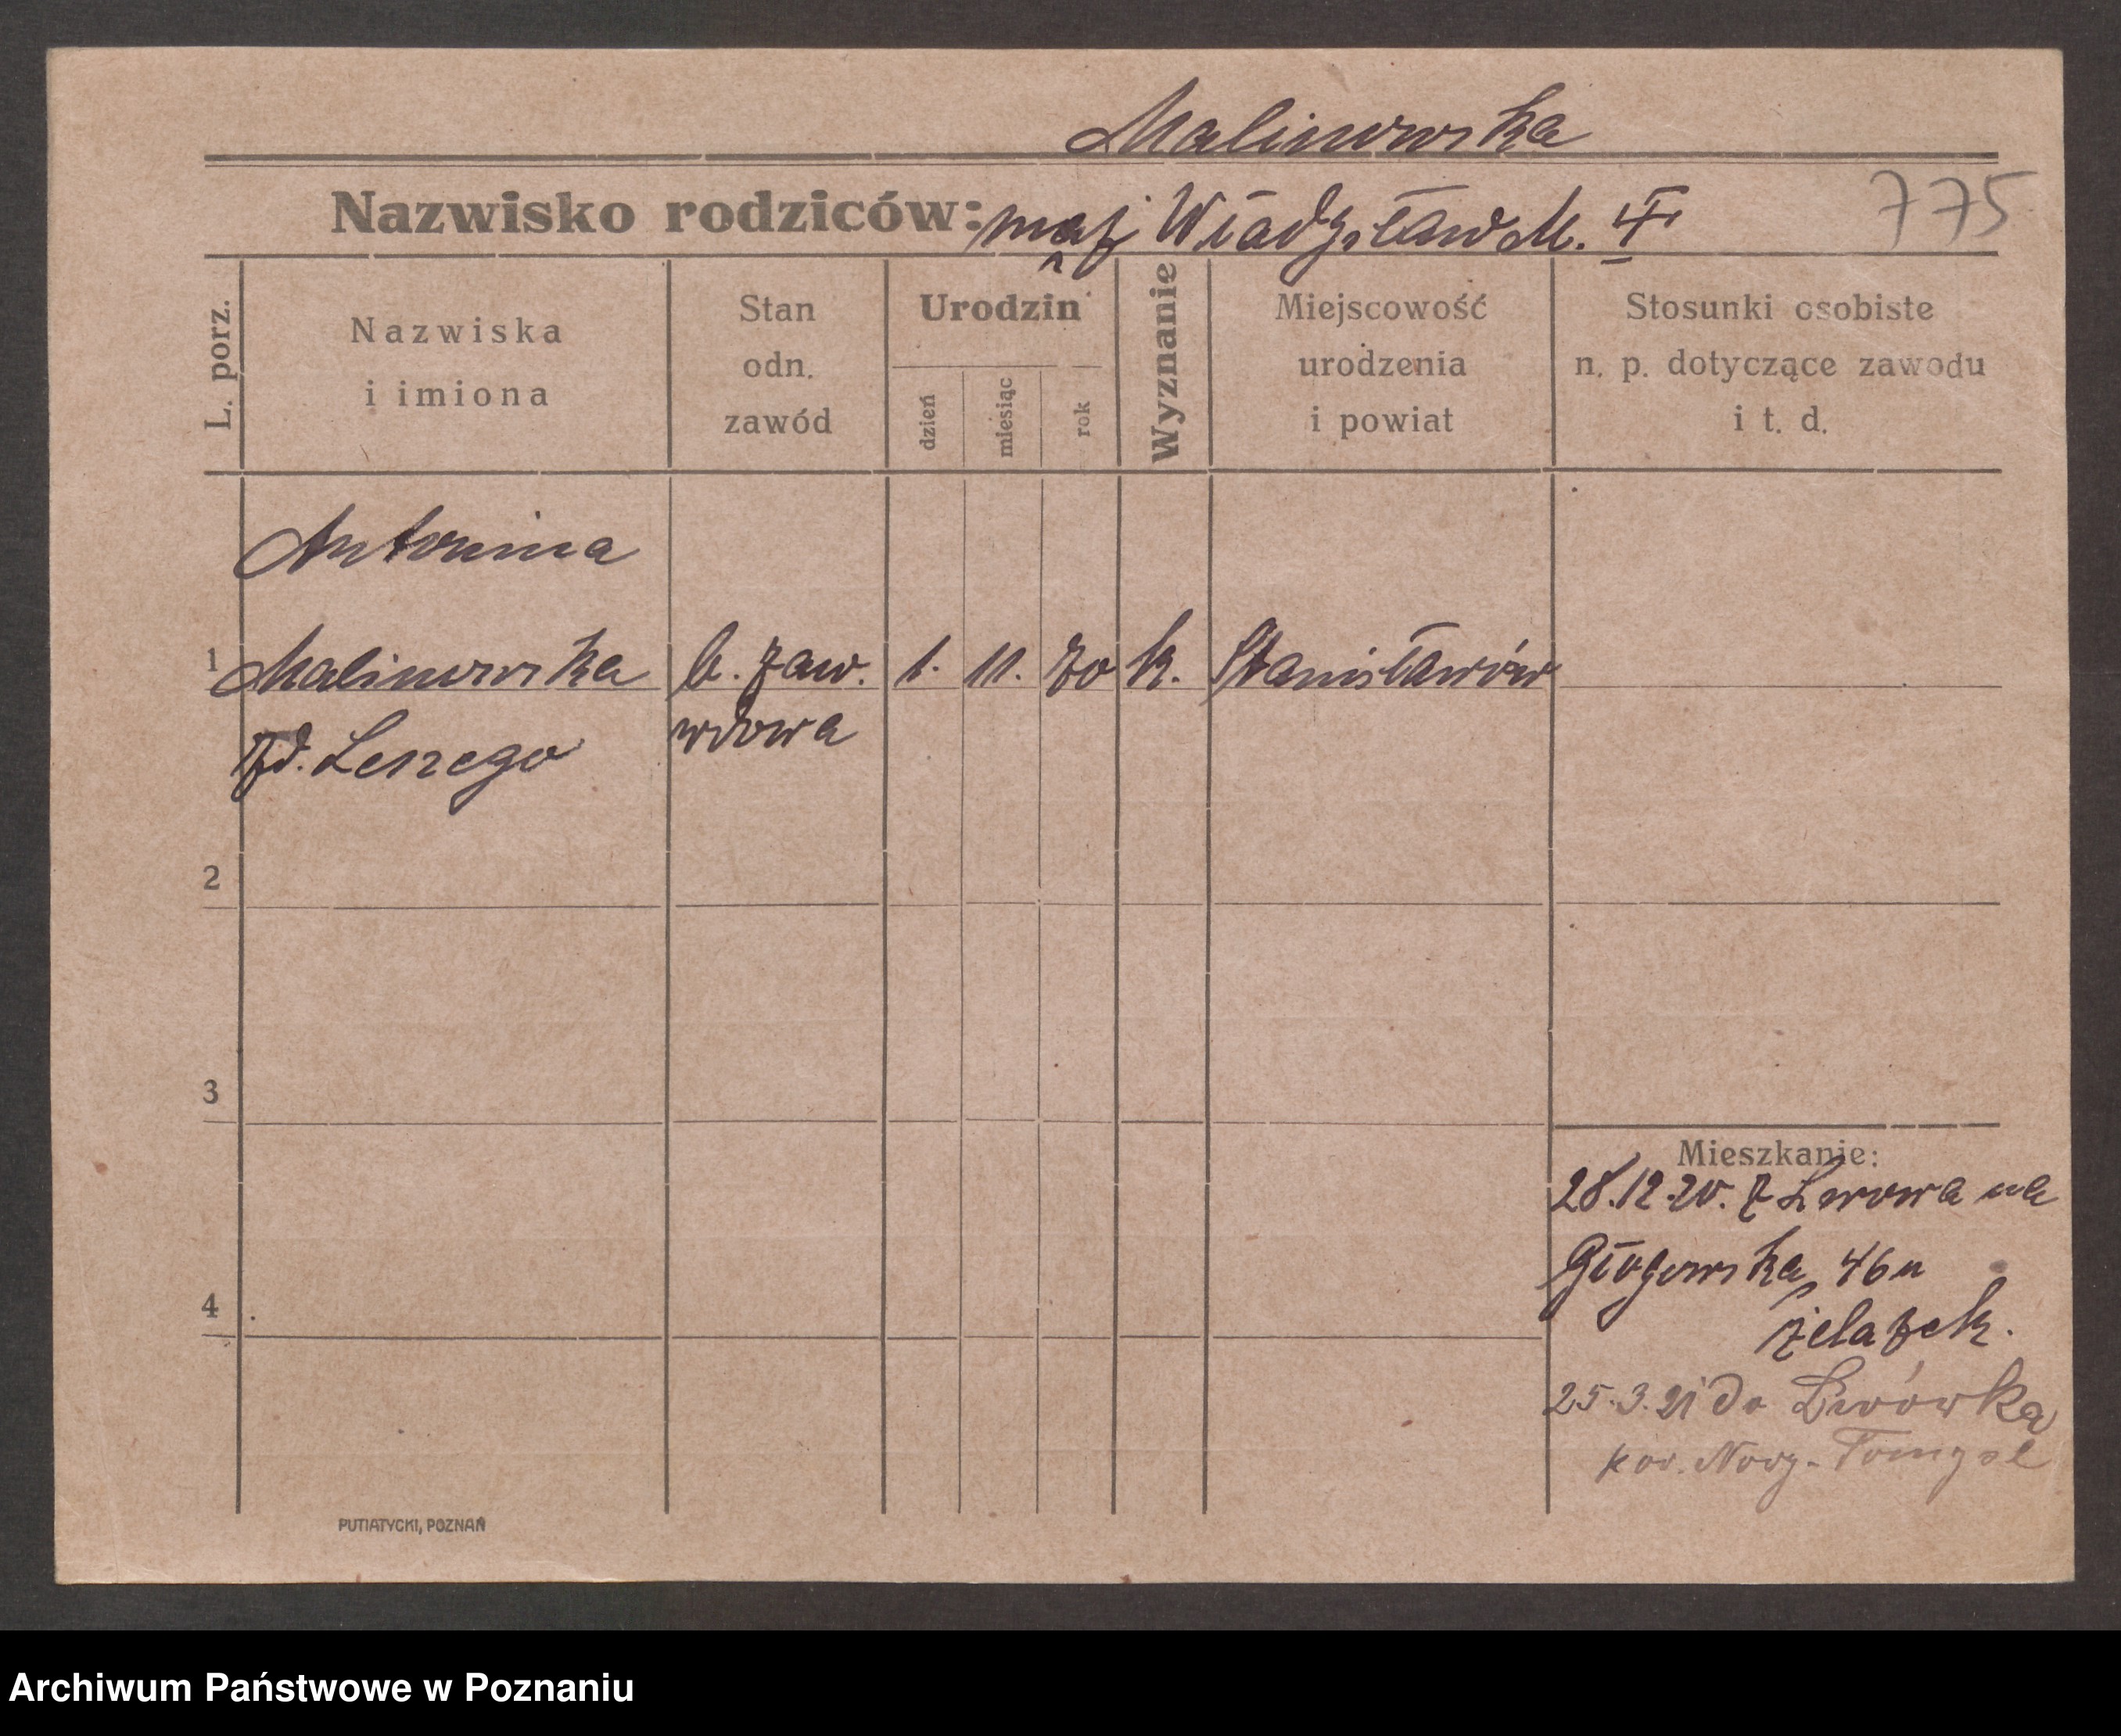 Malinowska
Nazwisko rodziców: mąż Władysław M. Ŧ
775
L. porz.
Nazwiska
i imiona
Stan
odn.
zawód
Urodzin
dzień
miesiąc
rok
Wyznanie
Miejscowość
urodzenia
i powiat
Stosunki osobiste
n. p. dotyczące zawodu
i t. d.
Antonina
1 Malinowska b. zaw. 1. 11. 70 k. Stanisławów
zd. wdowa
2
3
Mieszkanie:
28.12.20. z Lwowa na
Głogowską 46 u
żelazek.
4
25.3.21 do Lwówka
pow. Nowy-Tomysl
PUTIATYCKI, POZNAŃ
Archiwum Państwowe w Poznaniu